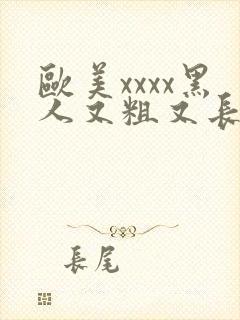 歐美xxxx黑
人又粗又長
長尾